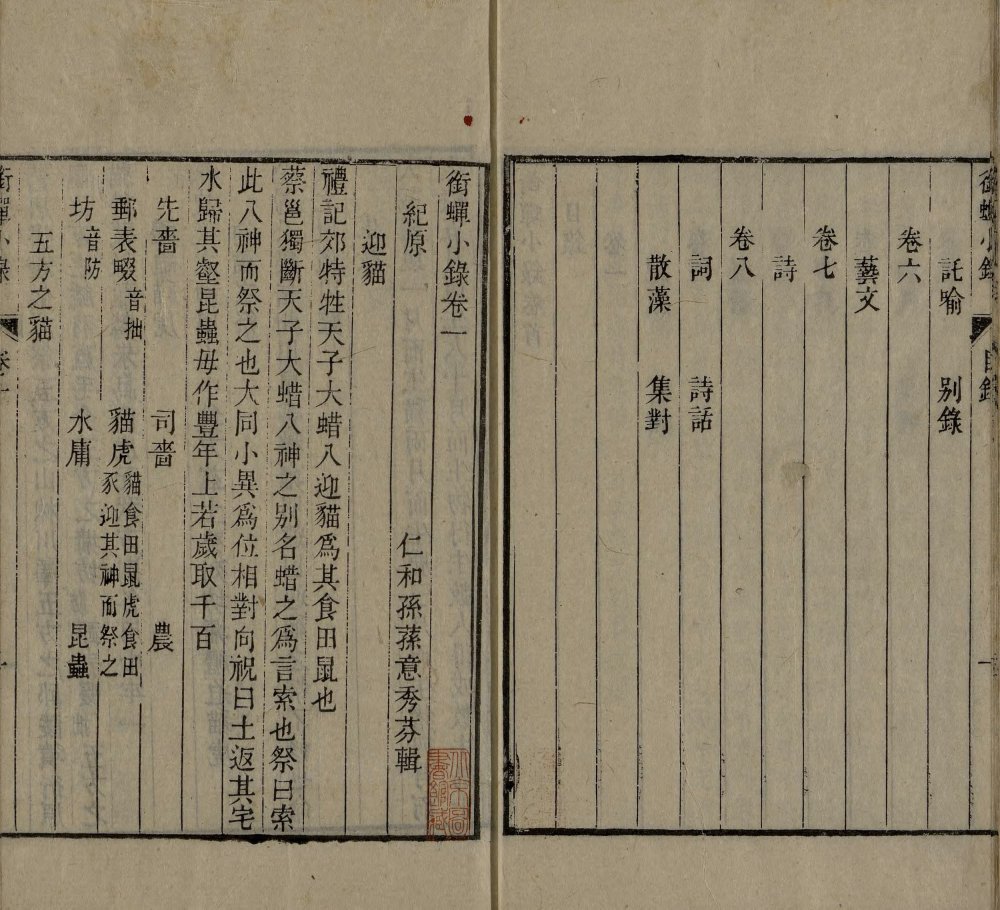 銜蟬小錄 目錄
託喻 别錄
卷六
藝文
卷七
詩
卷八
詞 詩話
散藻 集對
銜蟬小錄卷一
紀原 仁和孫蓀意秀芬輯
迎貓
禮記郊特牲天子大蜡八迎貓爲其食田鼠也
蔡邕獨斷天子大蜡八神之别名蜡之爲言索也祭曰索
此八神而祭之也大同小異爲位相對向祝曰土返其宅
水歸其壑昆蟲毋作豐年上若歲取千百
先嗇 司嗇 農
郵表畷音拙 貓虎貓食田鼠虎食田豕迎其神而祭之
坊音防 水庸 昆蟲
五方之貓
銜蟬小錄 卷一 一